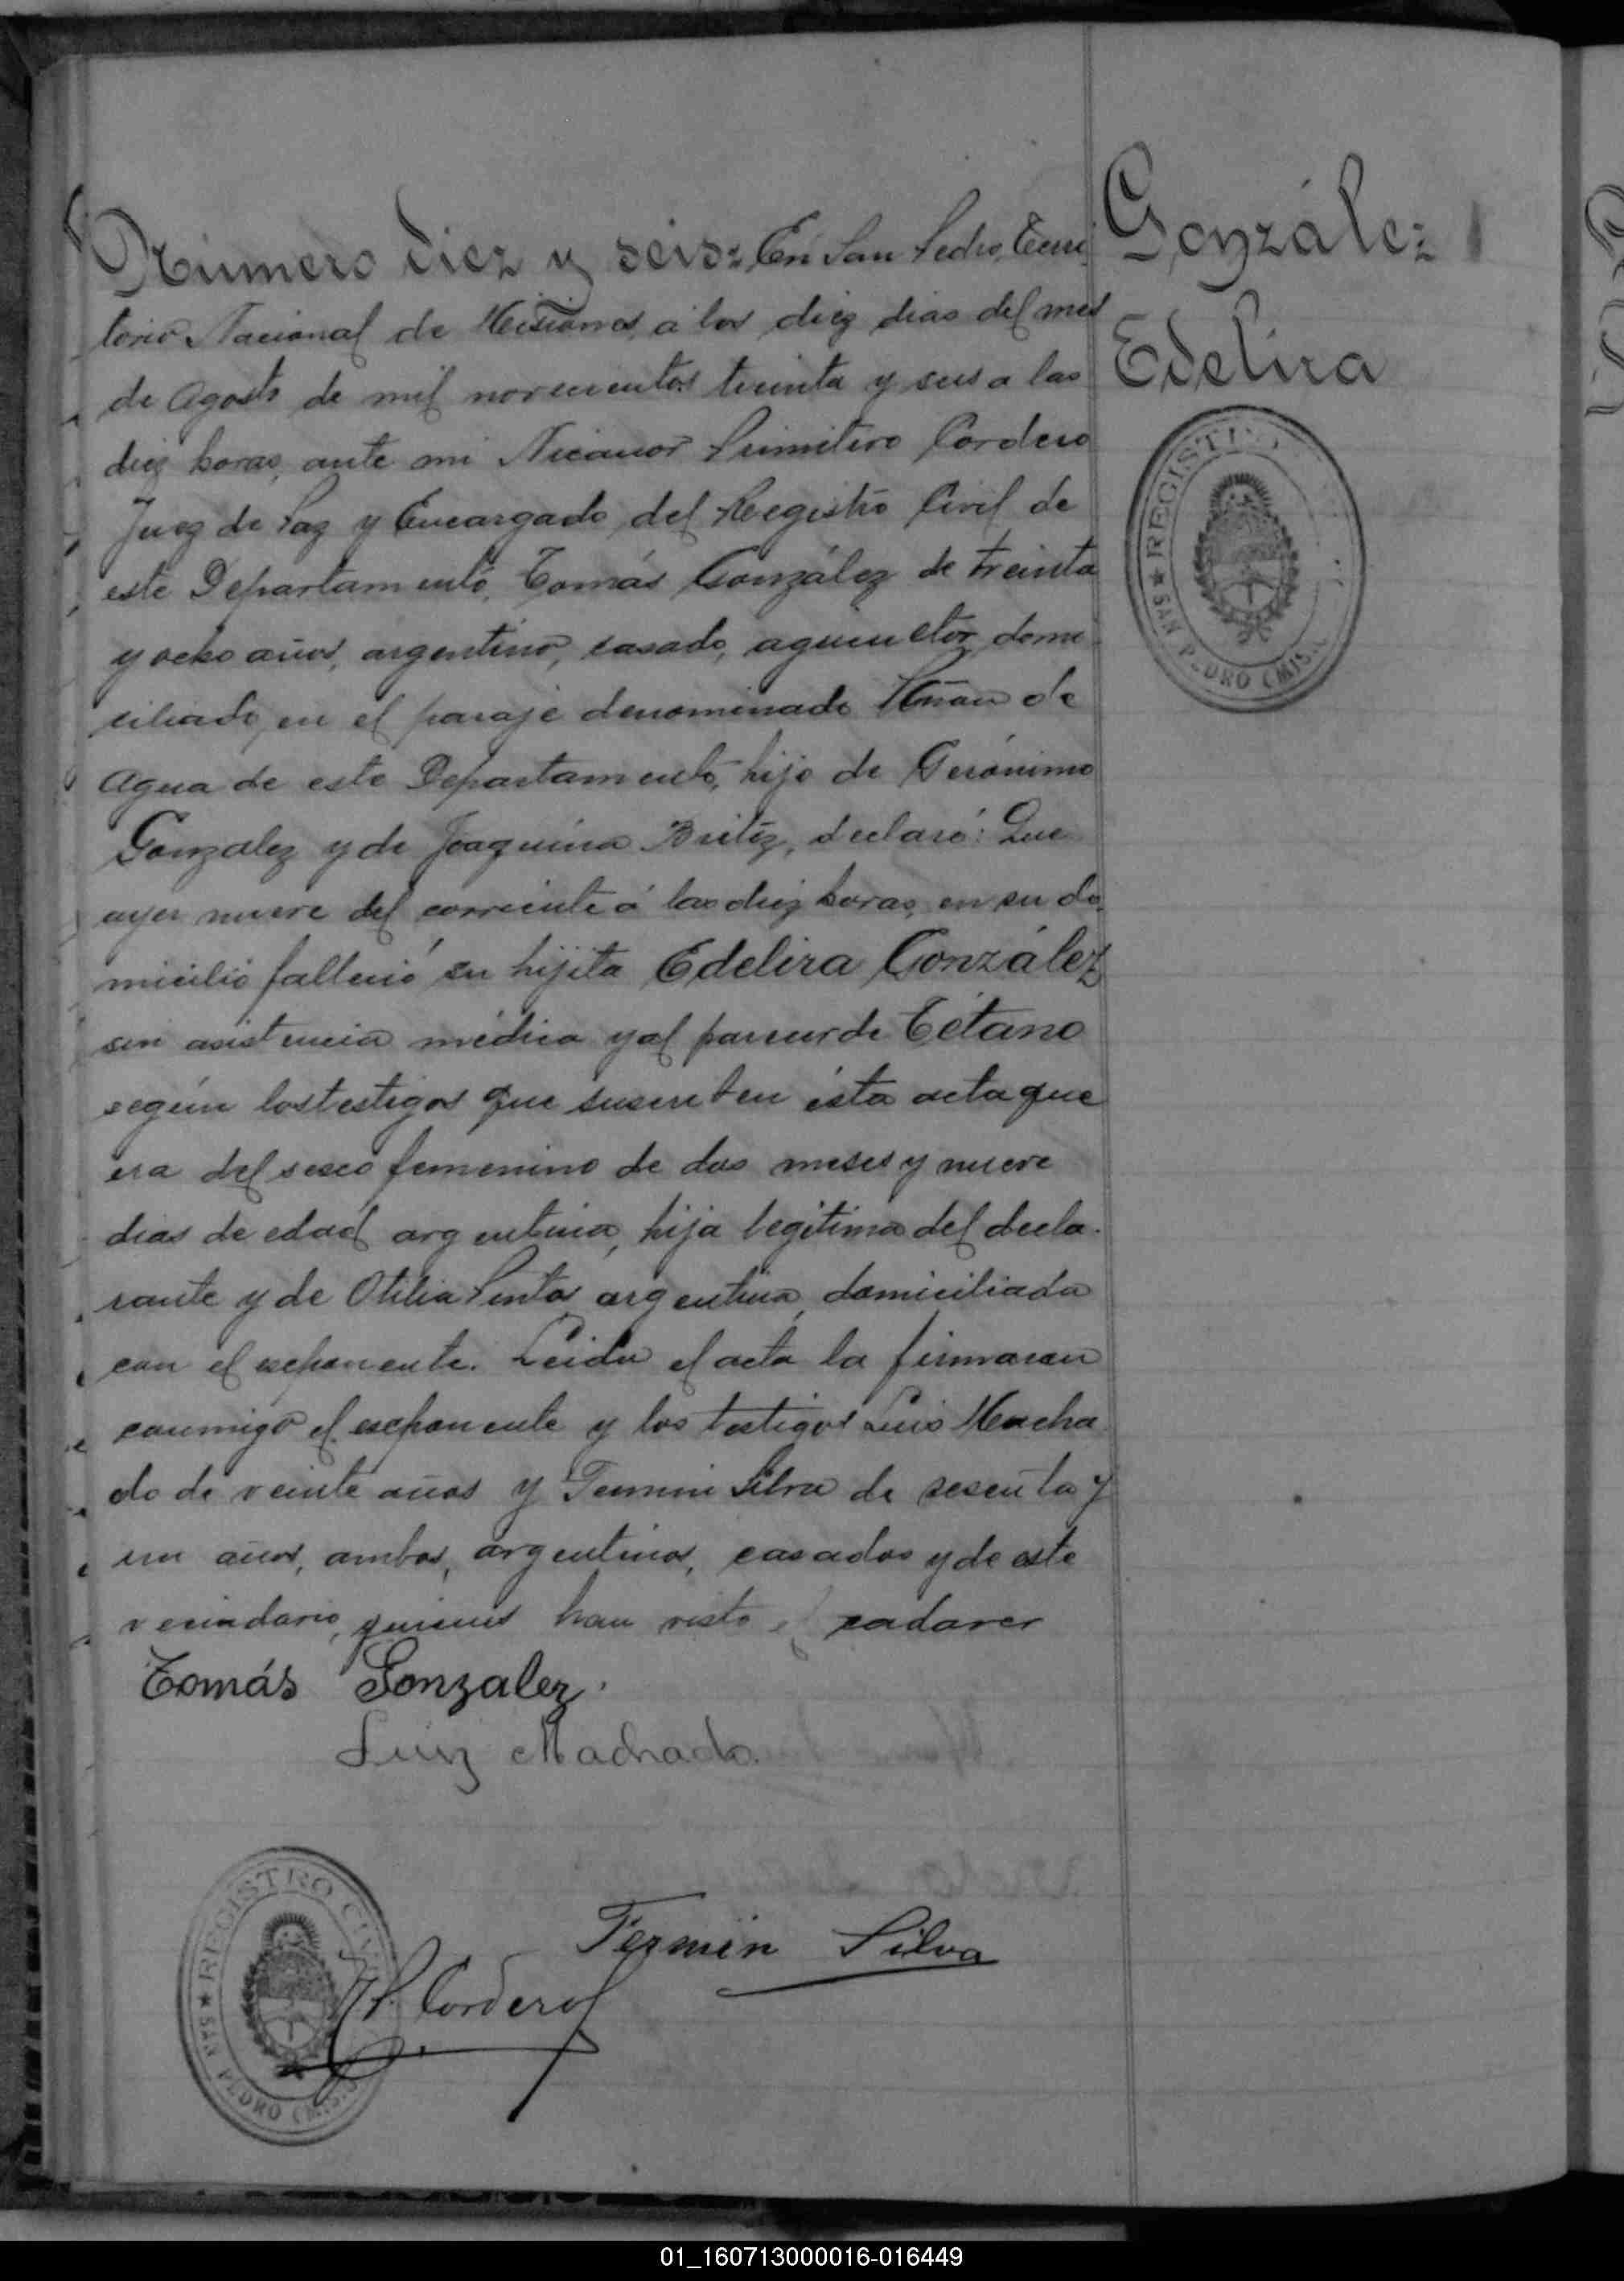 Número diez y seis: En San Pedro, Terri-
torio Nacional de Misiones, a los diez dias del mes
de Agosto de mil novecientos treinta y seis a las
diez horas, ante mi Nicanor Primitivo Cordero
Juez de Paz y Encargado del Registro Civil de
este Departamento, Tomás González de treinta
y ocho años, argentino, casado, agricultor, domi-
ciliado, en el paraje denominado de
Agua de este Departamento, hijo de Gerónimo
Gonzalez y de Joaquina Britez, declaró: Que
ayer nueve del corriente á las diez horas, en su do-
micilio falleció su hijita Edelira González
sin asistencia médica y al parecer de Tétano
según los testigos que suscriben ésta acta que
era del sexo femenino de dos meses y nueve
dias de edad argentina, hija legitima del decla-
rante y de Otilia Pinto, argentina, domiciliada
con el exponente. Leida el acta la firmaron
conmigo el exponente y los testigos Luis Macha-
do de veinte años y Fermin Silva de sesenta y
un años, ambos, argentinos, casados y de este
vecindario, quienes han visto el cadaver
Tomás Gonzalez.
Luiz Machado.
Fermin Silva
N.P. Cordero
González
Edelira
REGISTRO
★ SAN PEDRO (MIS.)
REGISTRO CIVIL
★ SAN PEDRO (MIS.)
01_160713000016-016449